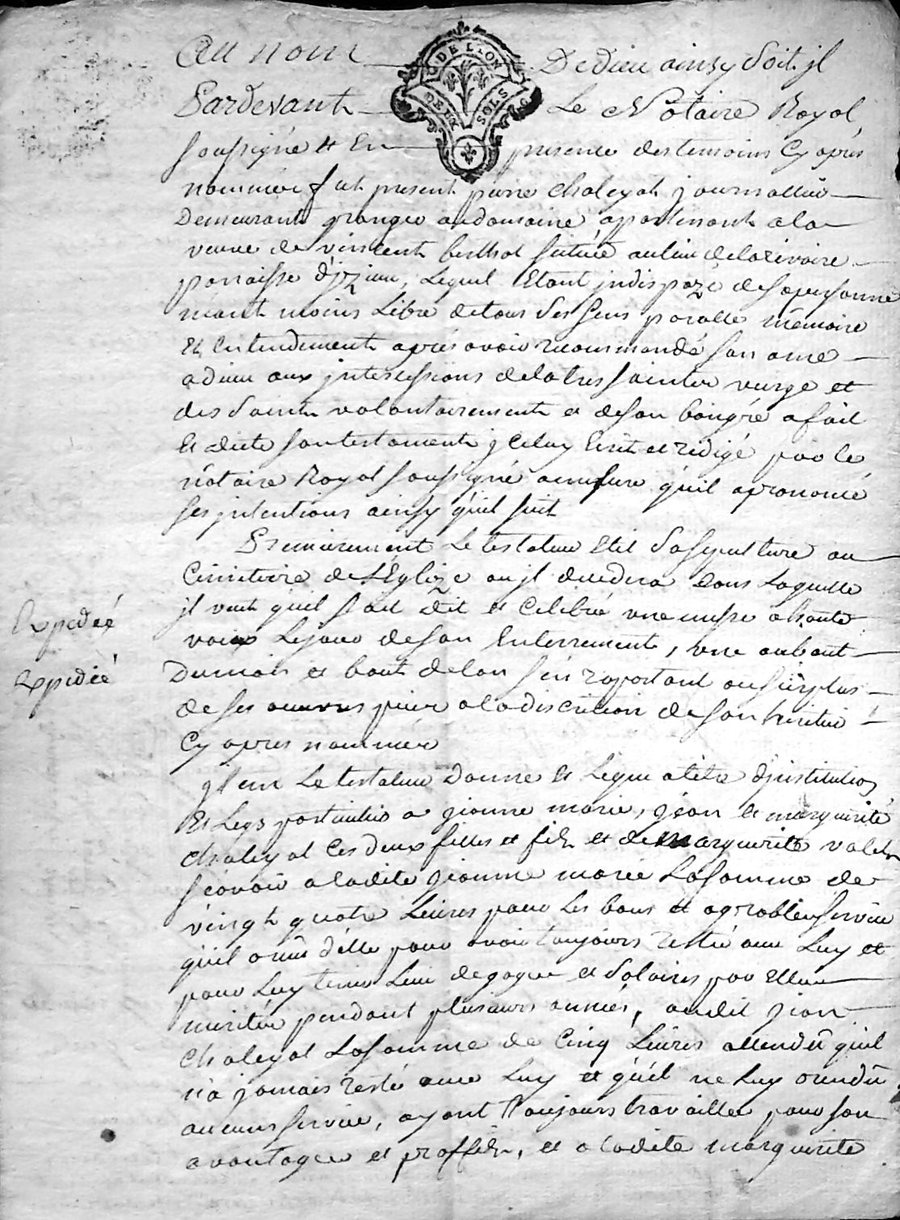 Au nom De dieu ainsy soit jl
Pardevant Le Notaire Royal
soussigné & En presence des temoins Cy après
nommés fut present pierre chaleyat journallier
Demeurant granger au domaine apartenant a la
veuve de vincent berthol scitué au lieu de la rivoire
parroisse d'jzieu, Lequel Etant jndispozé de sa personne
néant moins Libre de tous ses sens parolle mémoire
Et Entendement après avoir recommandé son ame
a dieu aux jntercessions de la tres sainte vierge et
des saints volontairement et de son bon gré a fait
Et dicté son testament jceluy Ecrit et redigé par le
nôtaire Royal soussigné a mesure qu'il a prononcé
ses jntentions ainsy qu'il suit
Premierement Le testateur Elit sa sepulture au
Cimitoire de L'Eglize ou jl decedera dans Laquelle
jl veut qu'il soit dit et celebré une messe a haute
voix Le jour de son Enterrement, une au bout
Du mois et bout de l'an s'en raportant au surplus
de ses œuvres pies a la discretion de son heritier
Cy après nommé
Expediée
Expediée
jtem Le testateur Donne et Legue a titre d'jnstitution
Et Legs particulier a jeanne marie, jean et marguerite
chaleyat ses deux filles et fils et de marguerite
sçavoir a ladite jeanne marie La somme de
vingt quatre Livres pour Les bons et agreables services
qu'il a eus d'elle pour avoir toujours resté avec Luy et
pour Luy tenir Lieu de gages et salaires par Elle
merités pendant plusieurs années, audit jean
chaleyat La somme de cinq Livres attendû qu'il
n'a jamais resté avec Luy et qu'il ne Luy a rendû
aucuns service, ayant toujours travaillé pour son
avantage et proffit, et a ladite marguerite